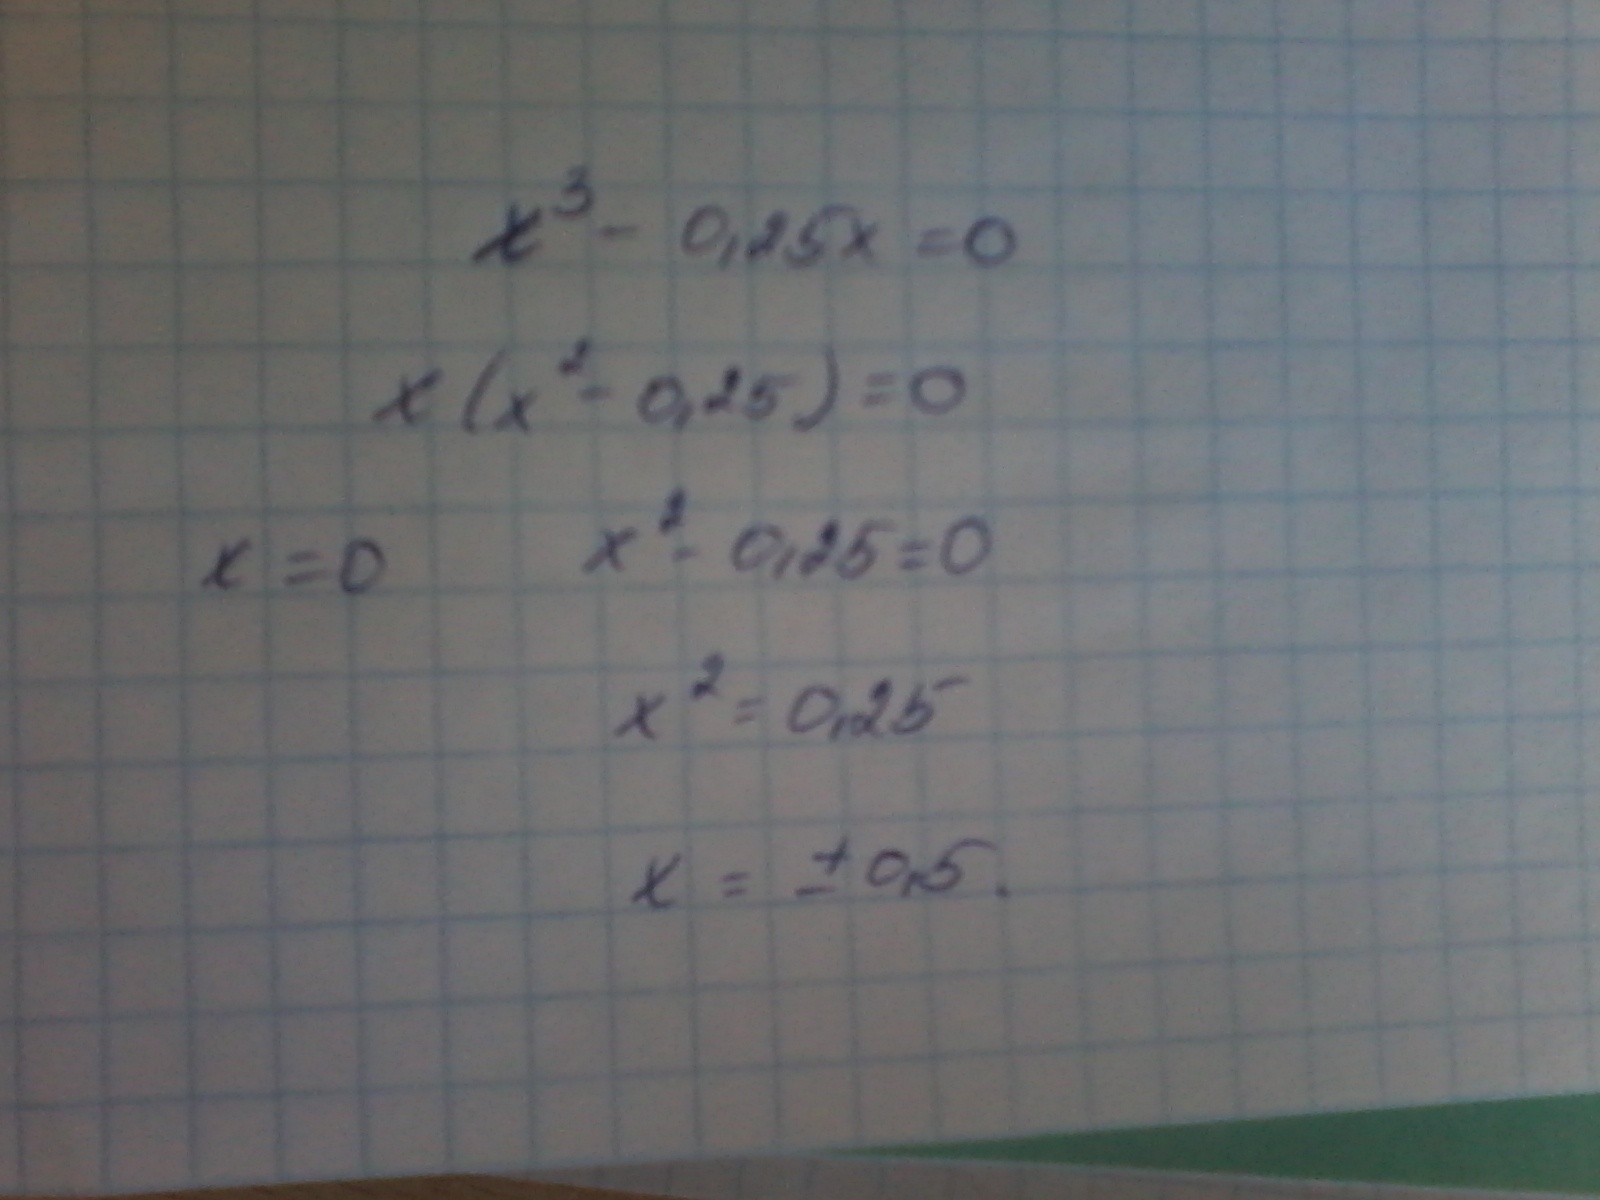 x³ - 0,25x = 0
x(x² - 0,25) = 0
x = 0 x² - 0,25 = 0
x² = 0,25
x = ± 0,5.